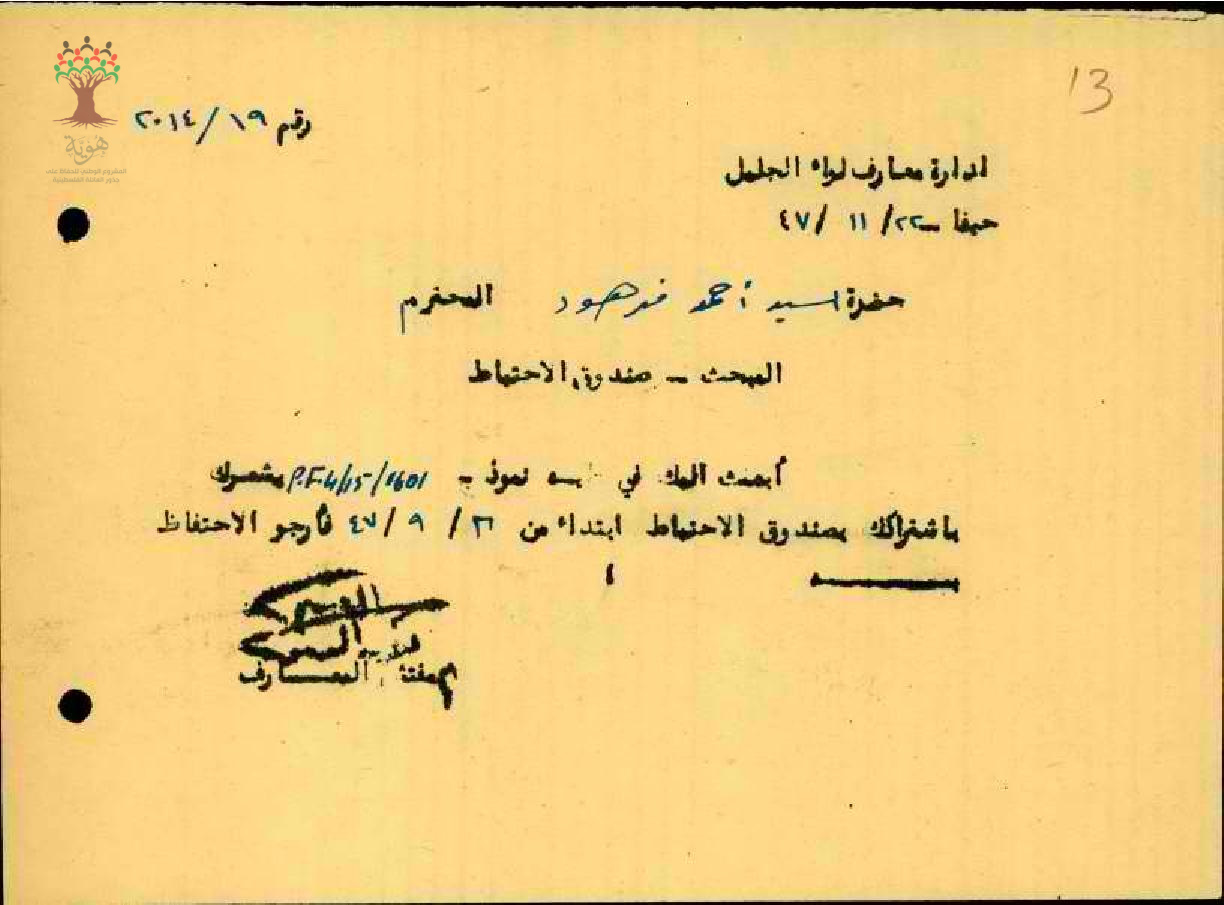 13
هوية
المشروع الوطني للحفاظ على
جذور العائلة الفلسطينية
رقم ١٩/٢٠١٤
ادارة معارف لواء الجليل
حيفا – ٢٢/ ١١ /٤٧
حضرة السيد أحمد فرهود المحترم
المبحث – صندوق الاحتياط
أبعث اليك في نموذج P.F.4/15/1601
باشتراكك بصندوق الاحتياط ابتداء من / ٩ /٤٧ فأرجو الاحتفاظ
مفتش المعارف